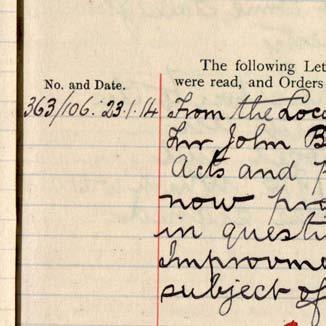 The following Let
No. and Date. were read, and Orders
363/106. 23.1.14 From the Loca
John B
Acts and
now pro
in questi
Improvme
subject of